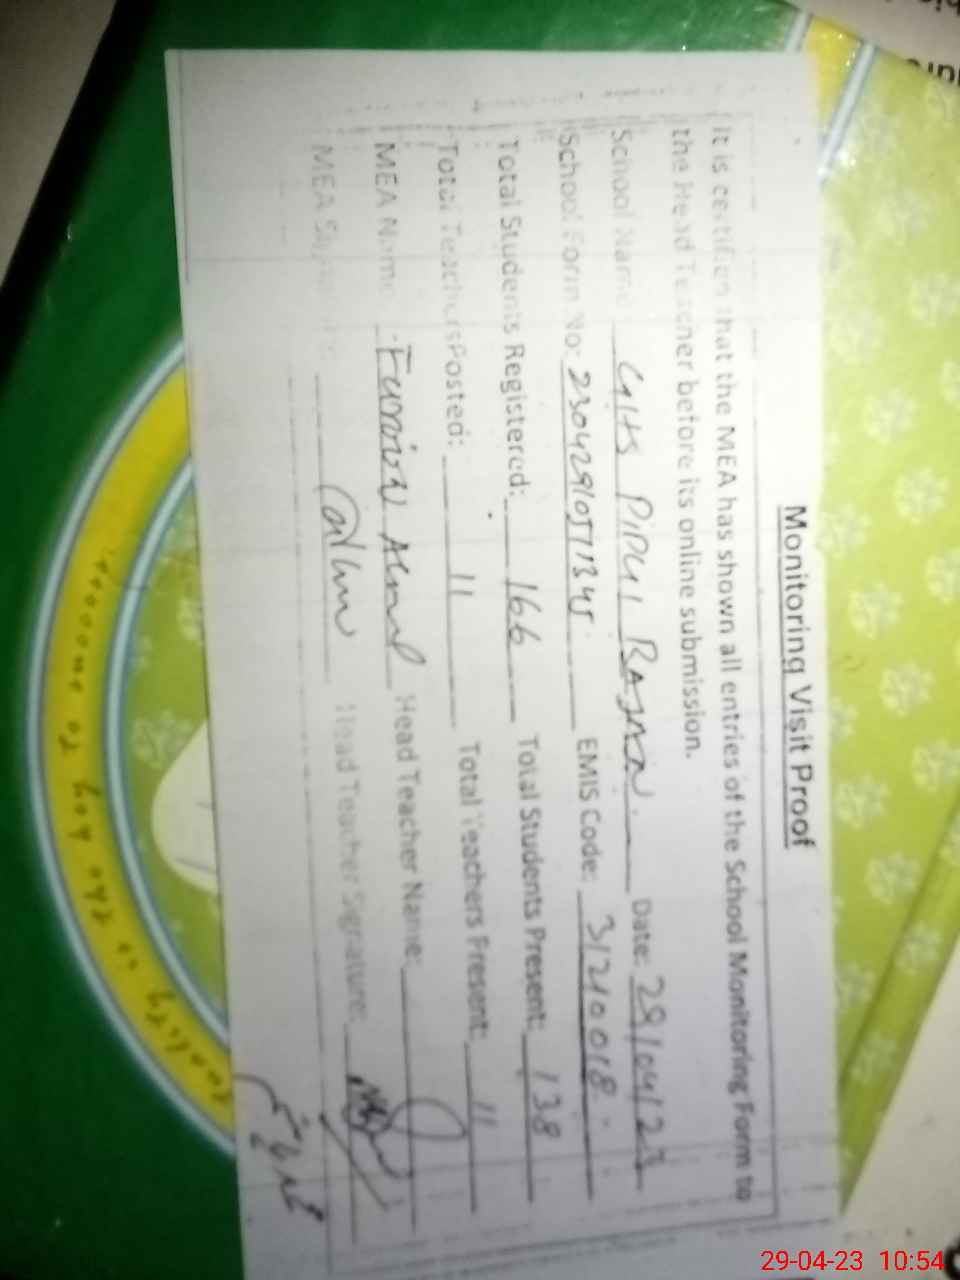 Monitoring Visit Proof
It is certified that the MEA has shown all entries of the School Monitoring Form to
the Head Teacher before its online submission.
School Name: GHS PIPLI RAJAN. Date: 29/04/23
School Form No: 23042910511345 EMIS Code: 31210018
Total Students Registered: 166 Total Students Present: 138
Total Teachers Posted: 11 Total Teachers Present: 11
MEA Name: Head Teacher Name:
MEA Signature: Head Teacher Signature:
29-04-23 10:54